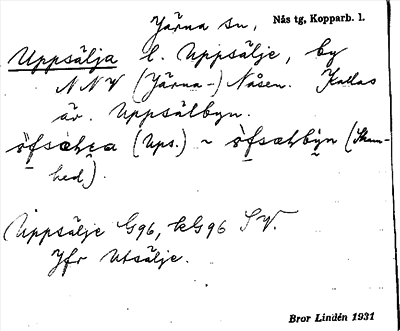 Järna sn, Nås tg, Kopparb. l.
Uppsälja l. Uppsälje, by
NNV (Järna-) Nåsen. Kallas
är. Uppsälbyn.
(Ups.) ~ (Skam-
hed).
Uppsälje G96, kG96 SV.
Jfr Utsälje.
Bror Lindén 1931